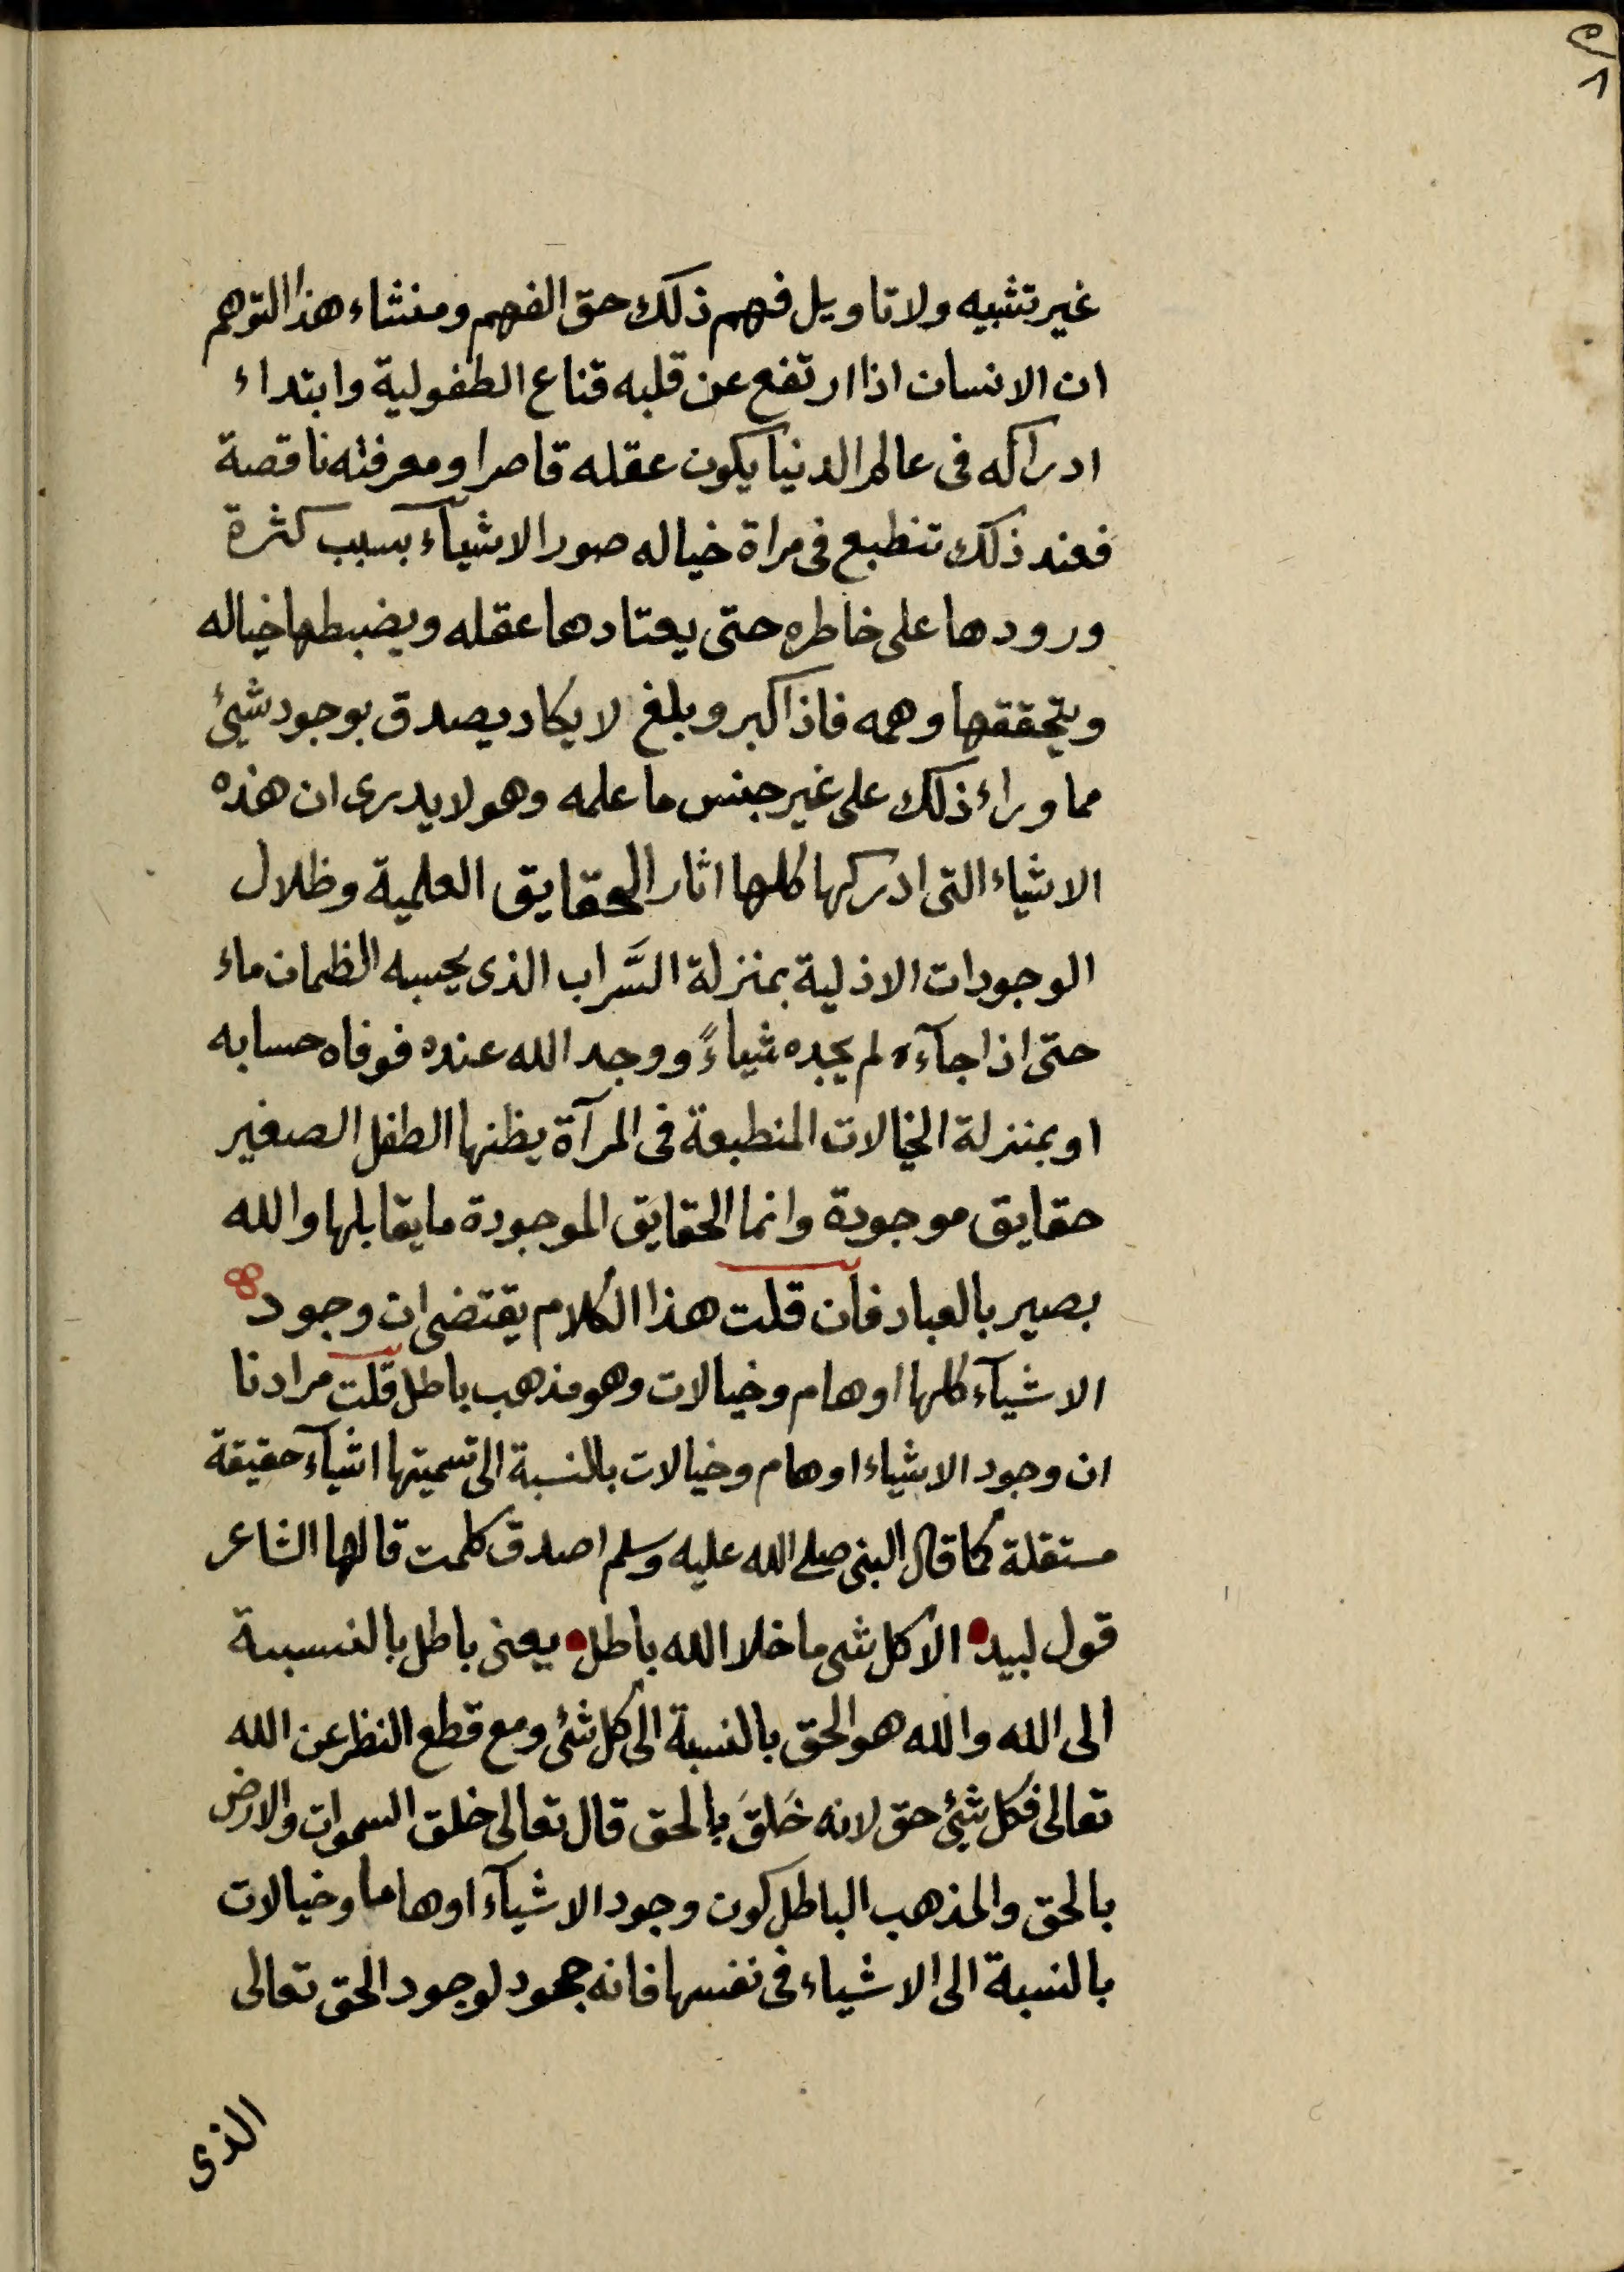 غير تشبيه ولا تاويل فهم ذلك حق الفهم ومنشاء هذا التوهم
ان الانسان اذا ارتفع عن قلبه قناع الطفولية وابتداء
ادراكه فى عالم الدنيا يكون عقله قاصرا ومعرفته ناقصة
فعند ذلك تنطبع فى مراة خياله صور الاشيآء بسبب كثرة
ورودها على خاطره حتى يعتادها عقله ويضبطها خياله
ويتحققها وهمه فاذا كبر وبلغ لا يكاد يصدق بوجود شيئ
مما وراء ذلك على غير جنس ما علمه وهو لا يدرى ان هذه
الاشياء التى ادركها كلها اثار الحقايق العلمية وظلال
الوجودات الازلية بمنزلة السَّراب الذى يحسبه الظمان ماء
حتى اذا جآءه لم يجده شياءً ووجد الله عنده فوفاه حسابه
او بمنزلة الخيالات المنطبعة فى المرآة يظنها الطفل الصغير
حقايق موجودة وانما الحقايق الموجودة ما يقابلها والله
بصير بالعباد فان قلت هذا الكلام يقتضى ان وجود
الاشيآء كلها اوهام وخيالات وهو مذهب باطل قلت مرادنا
ان وجود الاشياء اوهام وخيالات بالنسبة الى تسميتها اشيآء حقيقة
مستقلة كما قال النبى صلى الله عليه وسلم اصدق كلمت قالها الشاعر
قول لبيد الا كل شى ما خلا الله باطل يعنى باطل بالنسبة
الى الله والله هو الحق بالنسبة الى كل شئ ومع قطع النظر عن الله
تعالى فكل شيئ حق لانه خَلَقَ بالحق قال تعالى خلق السموات والارض
بالحق والمذهب الباطل كون وجود الاشيآء اوهاما وخيالات
بالنسبة الى الاشياء فى نفسها فانه جحود لوجود الحق تعالى
الذى